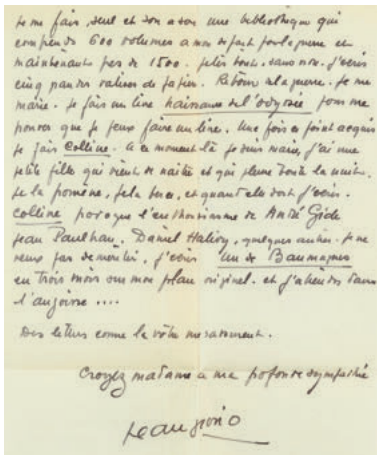 Je me fais, seul et son a son une bibliothèque qui
comprends 600 volumes a mon départ pour la guerre et
maintenant près de 1500. Je lis tout, sans non. J'écris
cinq grandes valises de papier. Retour à la guerre. Je me
marie. Je fais un livre naissance de l'odyssée pour me
prouver que je peux faire un livre. Une fois ce point acquis
je fais Colline. A ce moment là je suis marié, j'ai une
petite fille qui vient de naître et qui pleure toute la nuit.
Je la promène, je la berce, et quand elle dort j'écris.
Colline provoque l'enthousiasme de André Gide
Jean Paulhan, Daniel Halévy, quelques autres. Je ne
veux pas démentir, j'écris Un de Baumugnes
en trois mois sur mon plan original. et j'attends dans
l'angoisse ....
Des lettres comme la vôtre me rassurent.
Croyez madame a ma profonde sympathie
Jean Giono